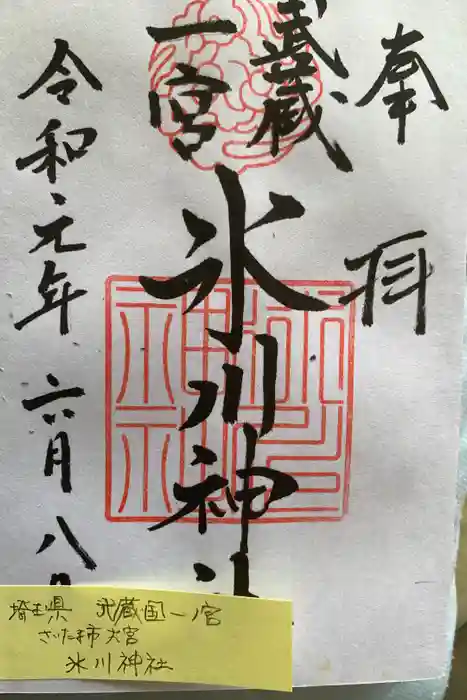 奉拝
武蔵
一宮
氷川神社
令和元年六月八日
埼玉県 武蔵国一ノ宮
さいたま市大宮
氷川神社